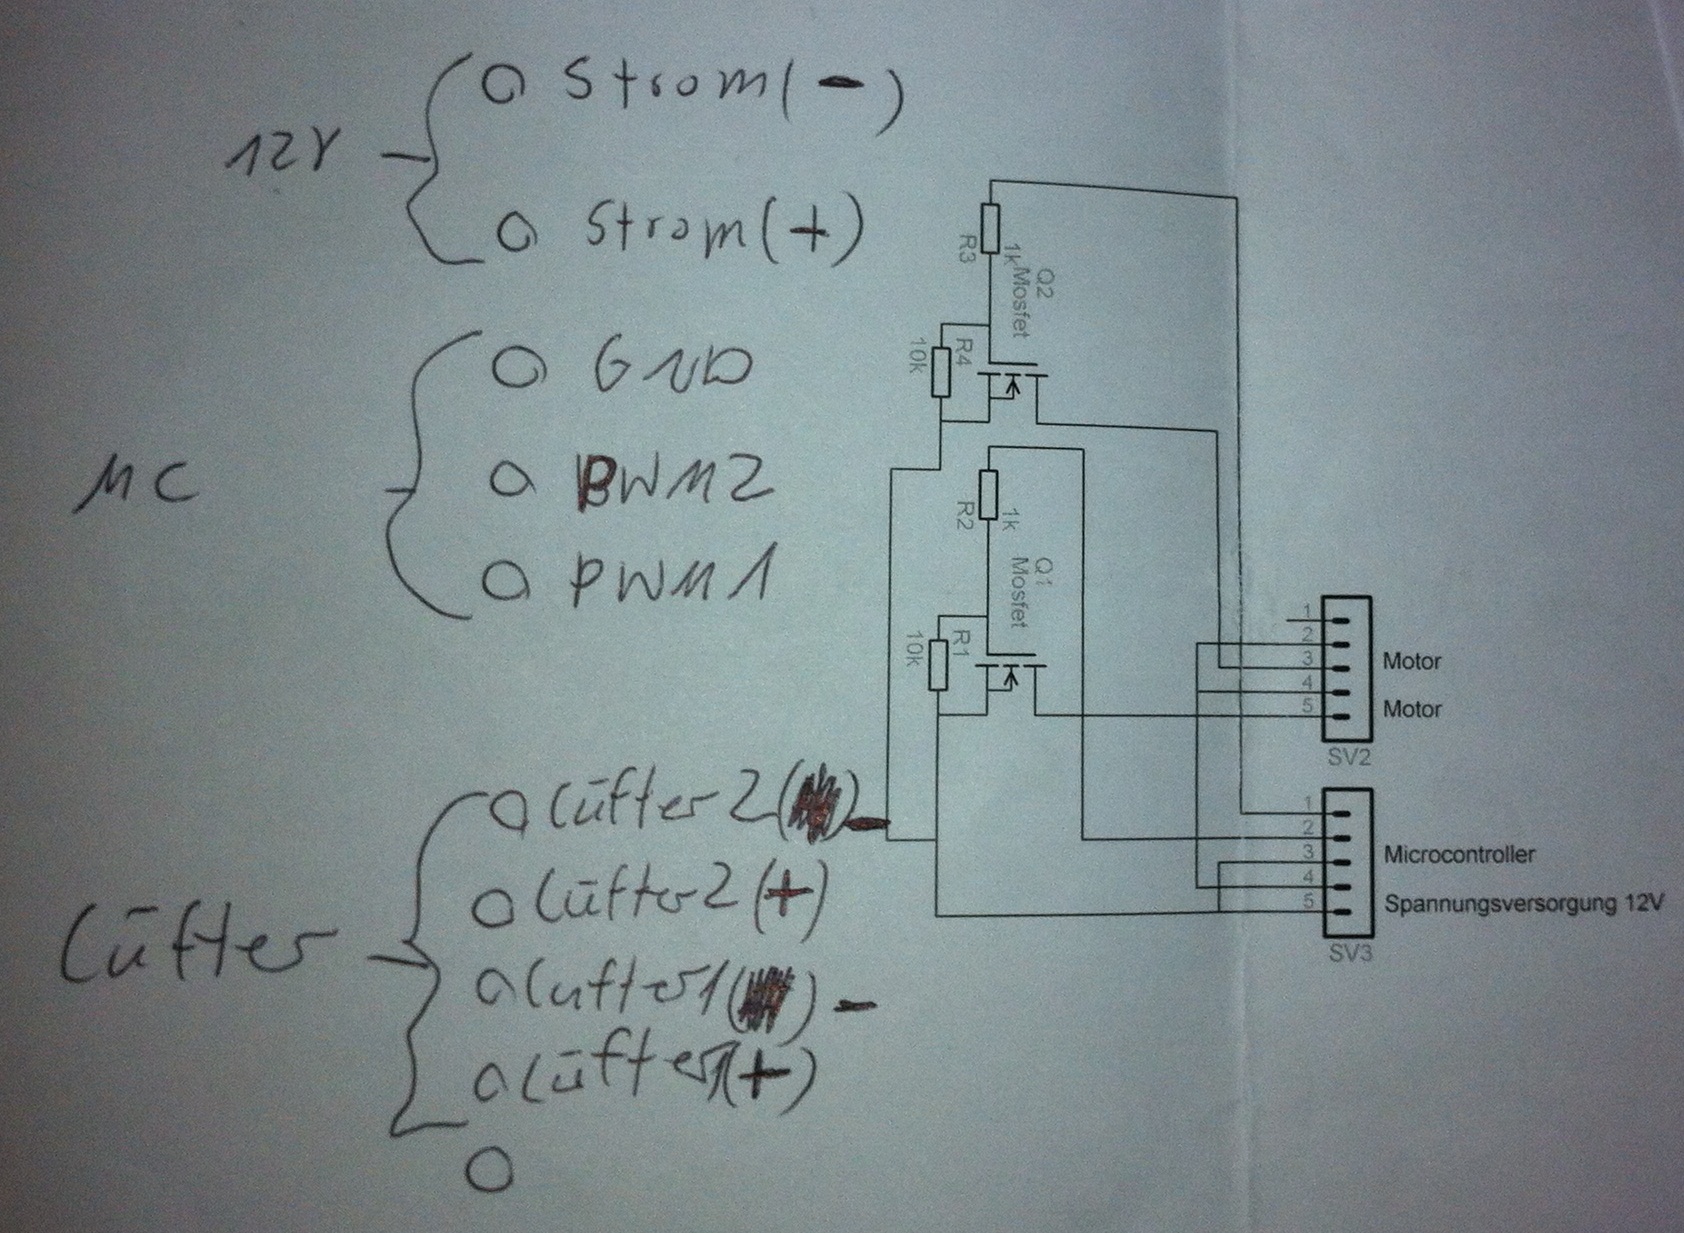 12V
O Strom (-)
O Strom (+)
MC
O GND
O PWM2
O PWM1
Lüfter
O Lüfter 2 ( -
O Lüfter 2 (+)
O Lüfter 1 ( ) -
O Lüfter 1 (+)
O
R3
1k
Q2
Mosfet
R4
10k
R2
1k
Q1
Mosfet
R1
10k
1
2
3
4
5
Motor
Motor
SV2
1
2
3
4
5
Microcontroller
Spannungsversorgung 12V
SV3